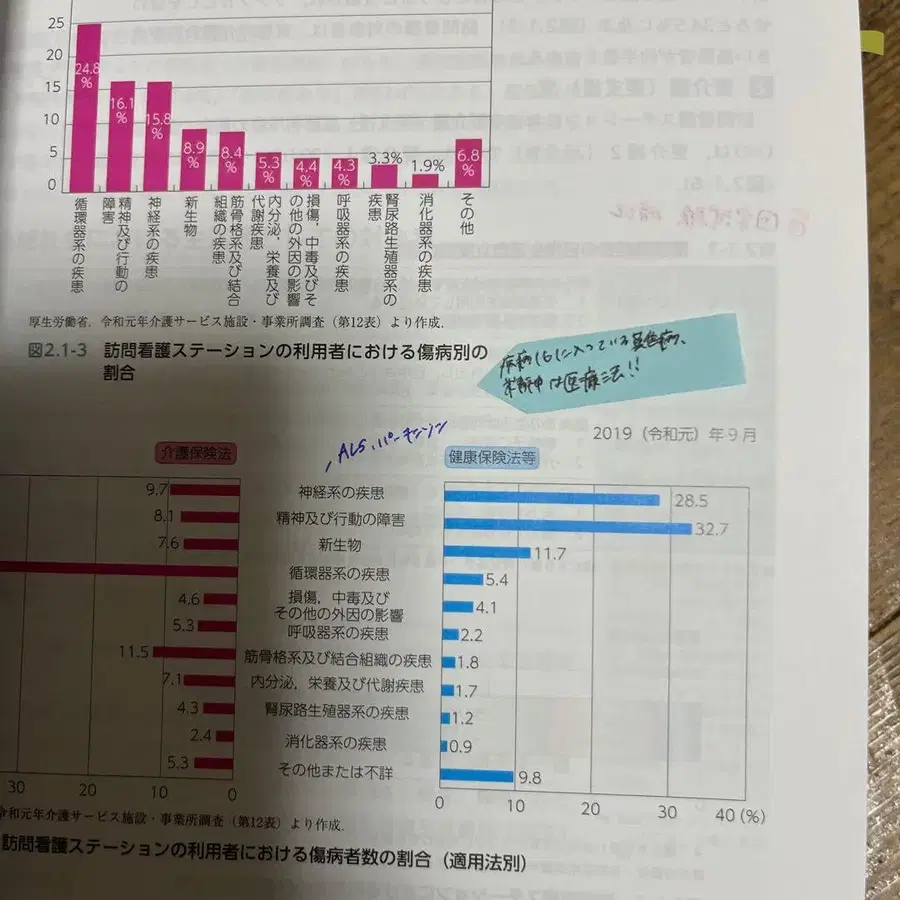 25
20
15
10
5
0
24.8
%
16.1
%
15.8
%
8.9
%
8.4
%
5.3
%
4.4
%
4.3
%
3.3%
1.9%
6.8
%
循環器系の疾患
精神及び行動の
障害
神経系の疾患
新生物
筋骨格系及び結合
組織の疾患
内分泌，栄養及び
代謝疾患
損傷，中毒及びそ
の他の外因の影響
呼吸器系の疾患
腎尿路生殖器系の
疾患
消化器系の疾患
その他
厚生労働省．令和元年介護サービス施設・事業所調査（第12表）より作成．
図2.1-3 訪問看護ステーションの利用者における傷病別の
割合
に入っている
は医療法!!
ALS、パーキンソン
2019（令和元）年9月
介護保険法
健康保険法等
9.7 神経系の疾患 28.5
8.1 精神及び行動の障害 32.7
7.6 新生物 11.7
循環器系の疾患 5.4
4.6 損傷，中毒及び
その他の外因の影響 4.1
5.3 呼吸器系の疾患 2.2
11.5 筋骨格系及び結合組織の疾患 1.8
7.1 内分泌，栄養及び代謝疾患 1.7
4.3 腎尿路生殖器系の疾患 1.2
2.4 消化器系の疾患 0.9
5.3 その他または不詳 9.8
30 20 10 0 0 10 20 30 40 (%)
令和元年介護サービス施設・事業所調査（第12表）より作成．
訪問看護ステーションの利用者における傷病者数の割合（適用法別）